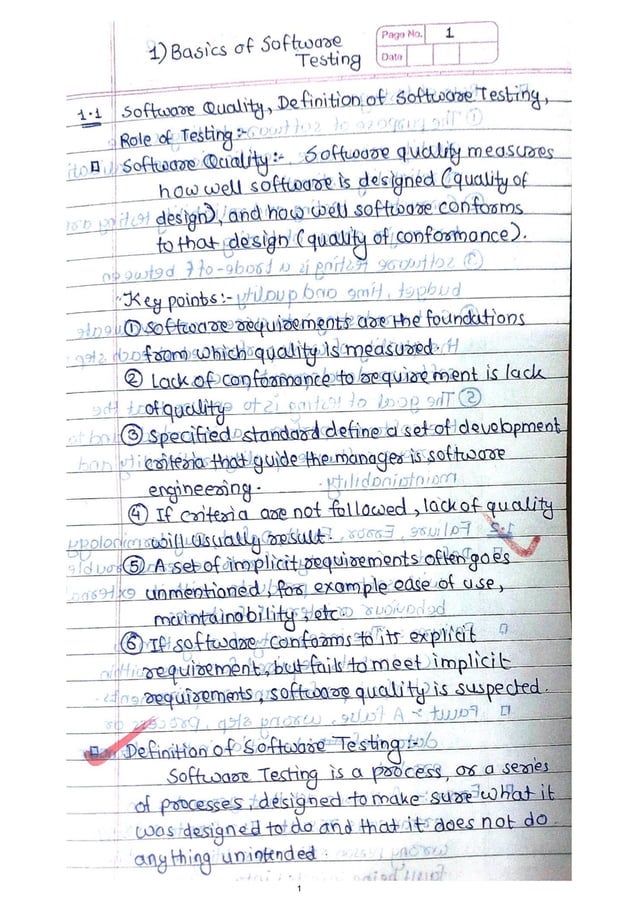 1) Basics of Software
Testing
Page No. 1
Date
1.1 Software Quality, Definition of Software Testing,
Role of Testing :-
Software Quality :- Software quality measures
how well software is designed (quality of
design), and how well software conforms
to that design (quality of conformance).
Key points :-
① Software requirements are the foundations
from which quality is measured.
② Lack of conformance to requirement is lack
of quality
③ Specified standard define a set of development
criteria that guide the manager is software
engineering.
④ If criteria are not followed, lack of quality
will usually result.
⑤ A set of implicit requirements often goes
unmentioned, for example ease of use,
maintainability, etc.
⑥ If software conforms to its explicit
requirement, but fails to meet implicit
requirements, software quality is suspected.
Definition of Software Testing :-
Software Testing is a process, or a series
of processes, designed to make sure what it
was designed to do and that it does not do
anything unintended.
1